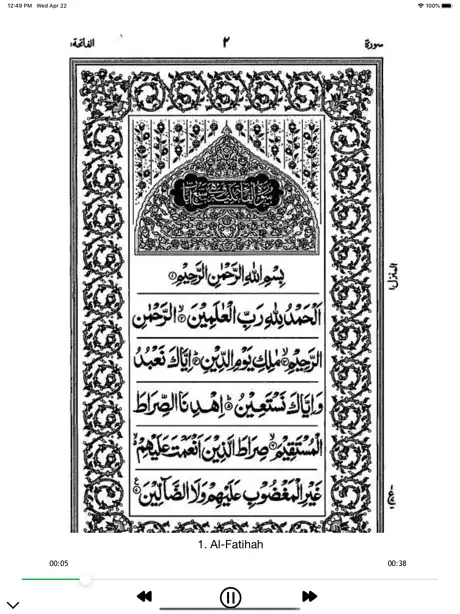 12:49 PM Wed Apr 22 100%
سورة ٢ الفاتحة
بِسْمِ اللهِ الرَّحْمٰنِ الرَّحِيْمِ
اَلْحَمْدُ لِلّٰهِ رَبِّ الْعٰلَمِيْنَ الرَّحْمٰنِ
الرَّحِيْمِ مٰلِكِ يَوْمِ الدِّيْنِ اِيَّاكَ نَعْبُدُ
وَاِيَّاكَ نَسْتَعِيْنُ اِهْدِنَا الصِّرَاطَ
الْمُسْتَقِيْمَ صِرَاطَ الَّذِيْنَ اَنْعَمْتَ عَلَيْهِمْ
غَيْرِ الْمَغْضُوْبِ عَلَيْهِمْ وَلَا الضَّآلِّيْنَ
1. Al-Fatihah
00:05 00:38